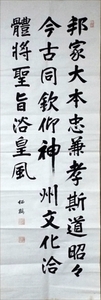 邦家大本忠兼孝斯道昭々
今古同欽仰神州文化洽
體將聖旨浴皇風